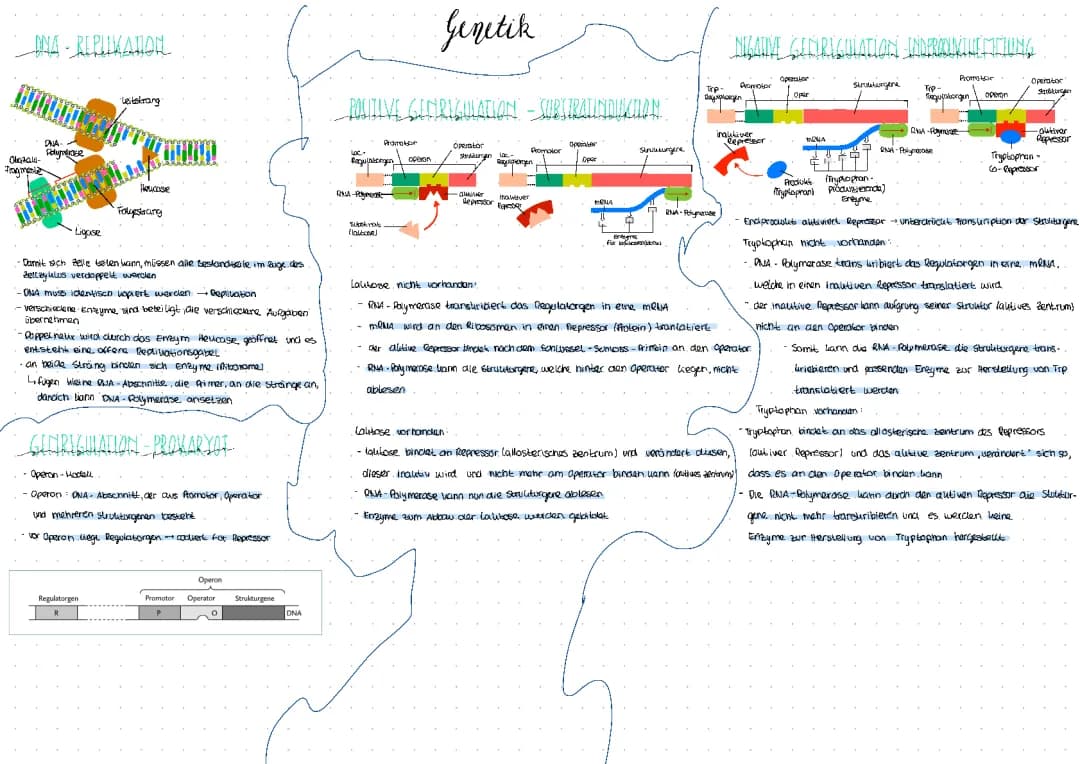 Genetik
DNA - REPLIKATION
Leitstrang
DNA-
Polymerase
Okazaki-
Fragmente
Helicase
Folgestrang
Ligase
- Damit sich Zelle teilen kann, müssen alle Bestandteile im Zuge des
Zellzyklus verdoppelt werden
- DNA muss identisch kopiert werden → Replikation
- verschiedene Enzyme sind beteiligt, die verschiedene Aufgaben
übernehmen
- Doppelhelix wird durch das Enzym Helicase geöffnet und es
entsteht eine offene Replikationsgabel
- an beide Stränge binden sich Enzyme (Ribosome)
↳ fügen kleine RNA-Abschnitte, die Primer, an die Stränge an,
danach kann DNA-Polymerase ansetzen
GENREGULATION - PROKARYOT
- Operon-Modell
- Operon: DNA-Abschnitt, der aus Promotor, Operator
und mehreren Strukturgenen besteht
- vor Operon liegt Regulatorgen → codiert für Repressor
Operon
Regulatorgen Promotor Operator Strukturgene
R P O DNA
POSITIVE GENREGULATION - SUBSTRATINDUKTION
Lac-
Regulatorgen
Promotor
Operon
Operator
Strukturgen
RNA-Polymerase
aktiver
Repressor
Substrat
(Laktose)
Lac-
Regulatorgen
Promotor
Operator
Oper
Strukturgene
inaktiver
Repressor
mRNA
RNA-Polymerase
Enzyme
Laktose nicht vorhanden:
- RNA-Polymerase transkribiert das Regulatorgen in eine mRNA
- mRNA wird an den Ribosomen in einen Repressor (Protein) translatiert
- der aktive Repressor bindet nach dem Schlüssel-Schloss-Prinzip an den Operator
- RNA-Polymerase kann die Strukturgene, welche hinter den Operator liegen, nicht
ablesen
Laktose vorhanden:
- Laktose bindet an Repressor (allosterisches Zentrum) und verändert diesen,
dieser inaktiv wird und nicht mehr am Operator binden kann (aktives Zentrum)
- RNA-Polymerase kann nun die Strukturgene ablesen
- Enzyme zum Abbau der Laktose wurden gebildet
NEGATIVE GENREGULATION - ENDPRODUKTHEMMUNG
Trp-
Regulatorgen
Promotor
Operator
Oper
Strukturgene
inaktiver
Repressor
Produkt
(Tryptophan)
mRNA
RNA-Polymerase
(Tryptophan-
produzierende)
Enzyme
Trp-
Regulatorgen
Promotor
Operon
Operator
Strukturgen
RNA-Polymerase
aktiver
Repressor
Tryptophan-
Co-Repressor
- Endprodukt aktiviert Repressor → unterdrückt Transkription der Strukturgene
Tryptophan nicht vorhanden:
- RNA-Polymerase transkribiert das Regulatorgen in eine mRNA,
welche in einen inaktiven Repressor translatiert wird
- der inaktive Repressor kann aufgrung seiner Struktur (aktives Zentrum)
nicht an den Operator binden
- Somit kann die RNA-Polymerase die Strukturgene trans-
kriebieren und passenden Enzyme zur Herstellung von Trp
translatiert werden
Tryptophan vorhanden:
- Tryptophan bindet an das allosterische Zentrum des Repressors
(aktiver Repressor) und das aktive Zentrum „verändert" sich so,
dass es an den Operator binden kann
- Die RNA-Polymerase kann durch den aktiven Repressor die Struktur-
gene nicht mehr transkribieren und es werden keine
Enzyme zur Herstellung von Tryptophan hergestellt